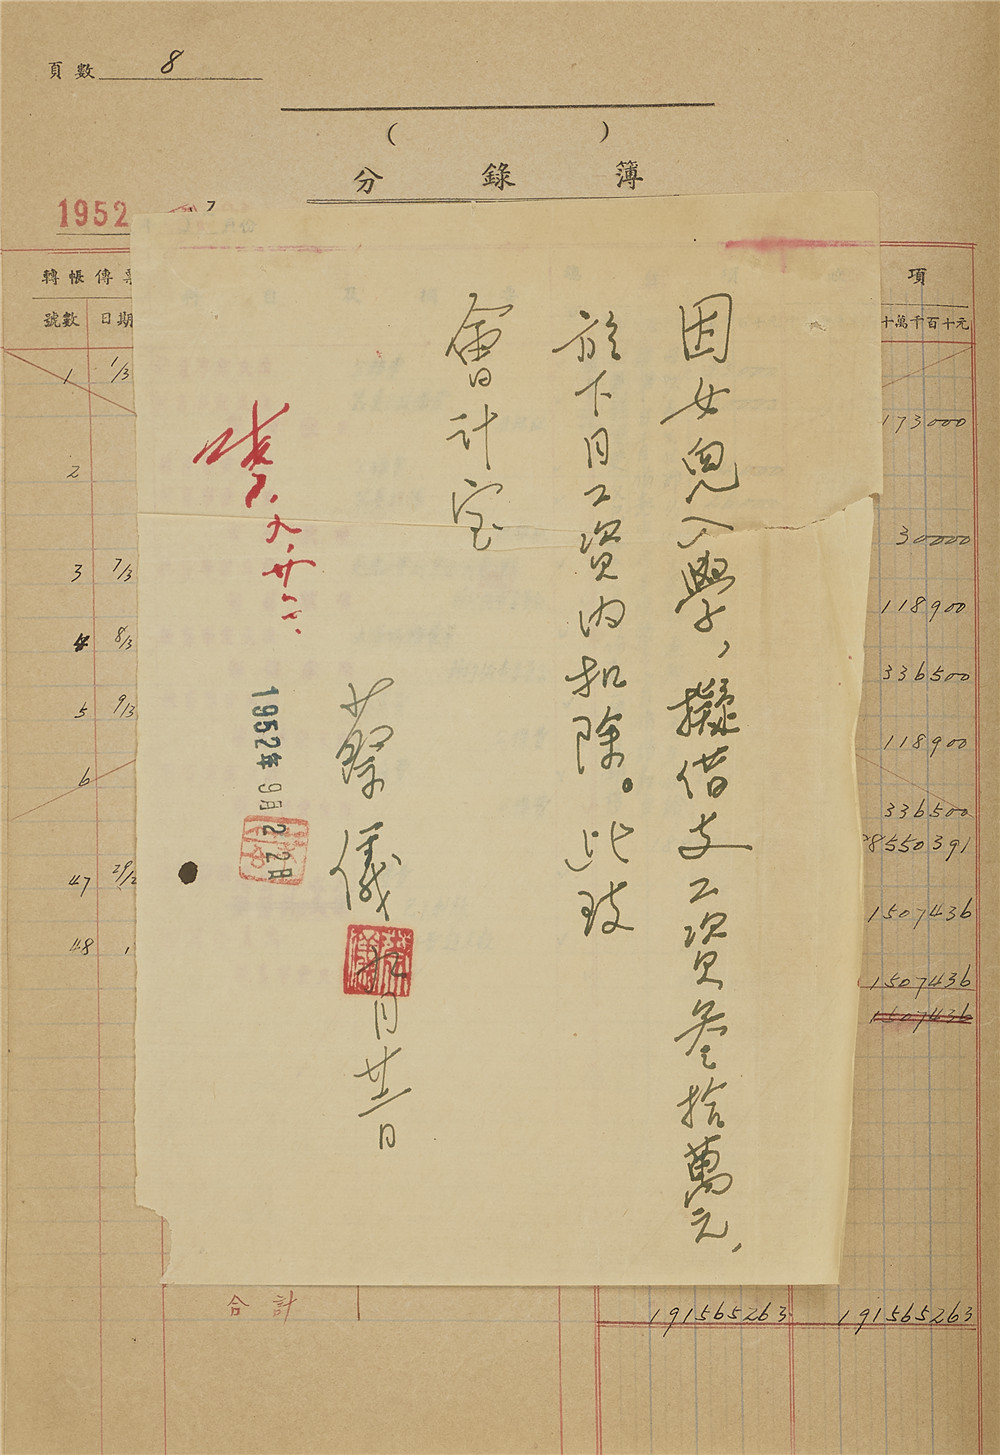 頁數 8
( )
分錄簿
1952 7
轉帳傳票
號數 日期
項
十萬千百十元
1 1/3
173000
2
30000
3 7/3
118900
4 8/3
336500
5 9/3
118900
6
336500
8550391
47 29/12
1507436
48
1507436
1507436
合計 191565263 191565263
因女兒入學，擬借支工資叁拾萬元，
於下月工資内扣除。此致
會計室
蔡儀 九月廿二日
蔡儀
九.廿二.
1952年9月22日